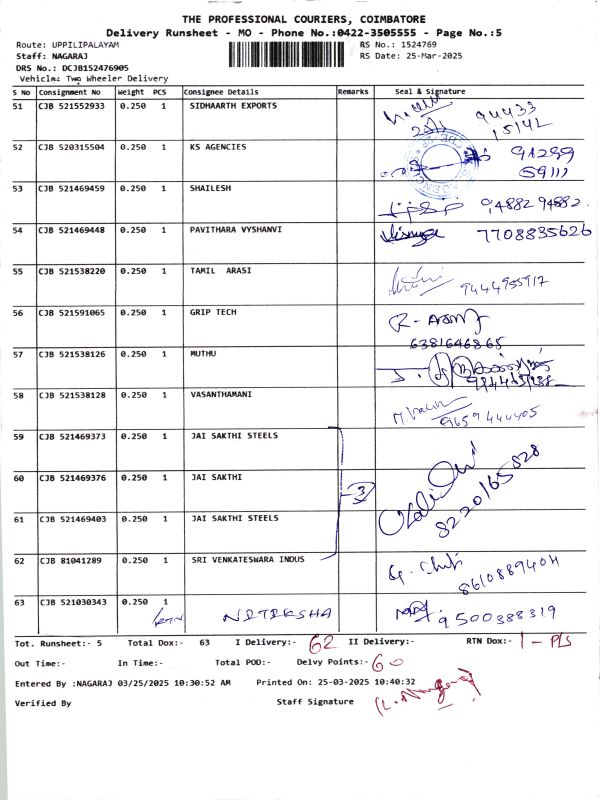 THE PROFESSIONAL COURIERS, COIMBATORE
Delivery Runsheet - MO - Phone No.:0422-3505555 - Page No.:5
Route: UPPILIPALAYAM RS No.: 1524769
Staff: NAGARAJ RS Date: 25-Mar-2025
DRS No.: DCJB152476905
Vehicle: Two Wheeler Delivery
S No Consignment No Weight PCS Consignee Details Remarks Seal & Signature
51 CJB 521552933 0.250 1 SIDHAARTH EXPORTS 94433
15142
52 CJB 520315504 0.250 1 KS AGENCIES 91299
59111
53 CJB 521469459 0.250 1 SHAILESH 94882 94882
54 CJB 521469448 0.250 1 PAVITHARA VYSHANVI 7708835626
55 CJB 521538220 0.250 1 TAMIL ARASI 9444955917
56 CJB 521591065 0.250 1 GRIP TECH
6381646865
57 CJB 521538126 0.250 1 MUTHU
58 CJB 521538128 0.250 1 VASANTHAMANI 9659444405
59 CJB 521469373 0.250 1 JAI SAKTHI STEELS
60 CJB 521469376 0.250 1 JAI SAKTHI 3 8220165828
61 CJB 521469403 0.250 1 JAI SAKTHI STEELS
62 CJB 81041289 0.250 1 SRI VENKATESWARA INDUS 8610889404
63 CJB 521030343 0.250 1 9500388319
RTN
Tot. Runsheet:- 5 Total Dox:- 63 I Delivery:- 62 II Delivery:- RTN Dox:- 1 - P/S
Out Time:- In Time:- Total POD:- Delvy Points:- 60
Entered By :NAGARAJ 03/25/2025 10:30:52 AM Printed On: 25-03-2025 10:40:32
Verified By Staff Signature